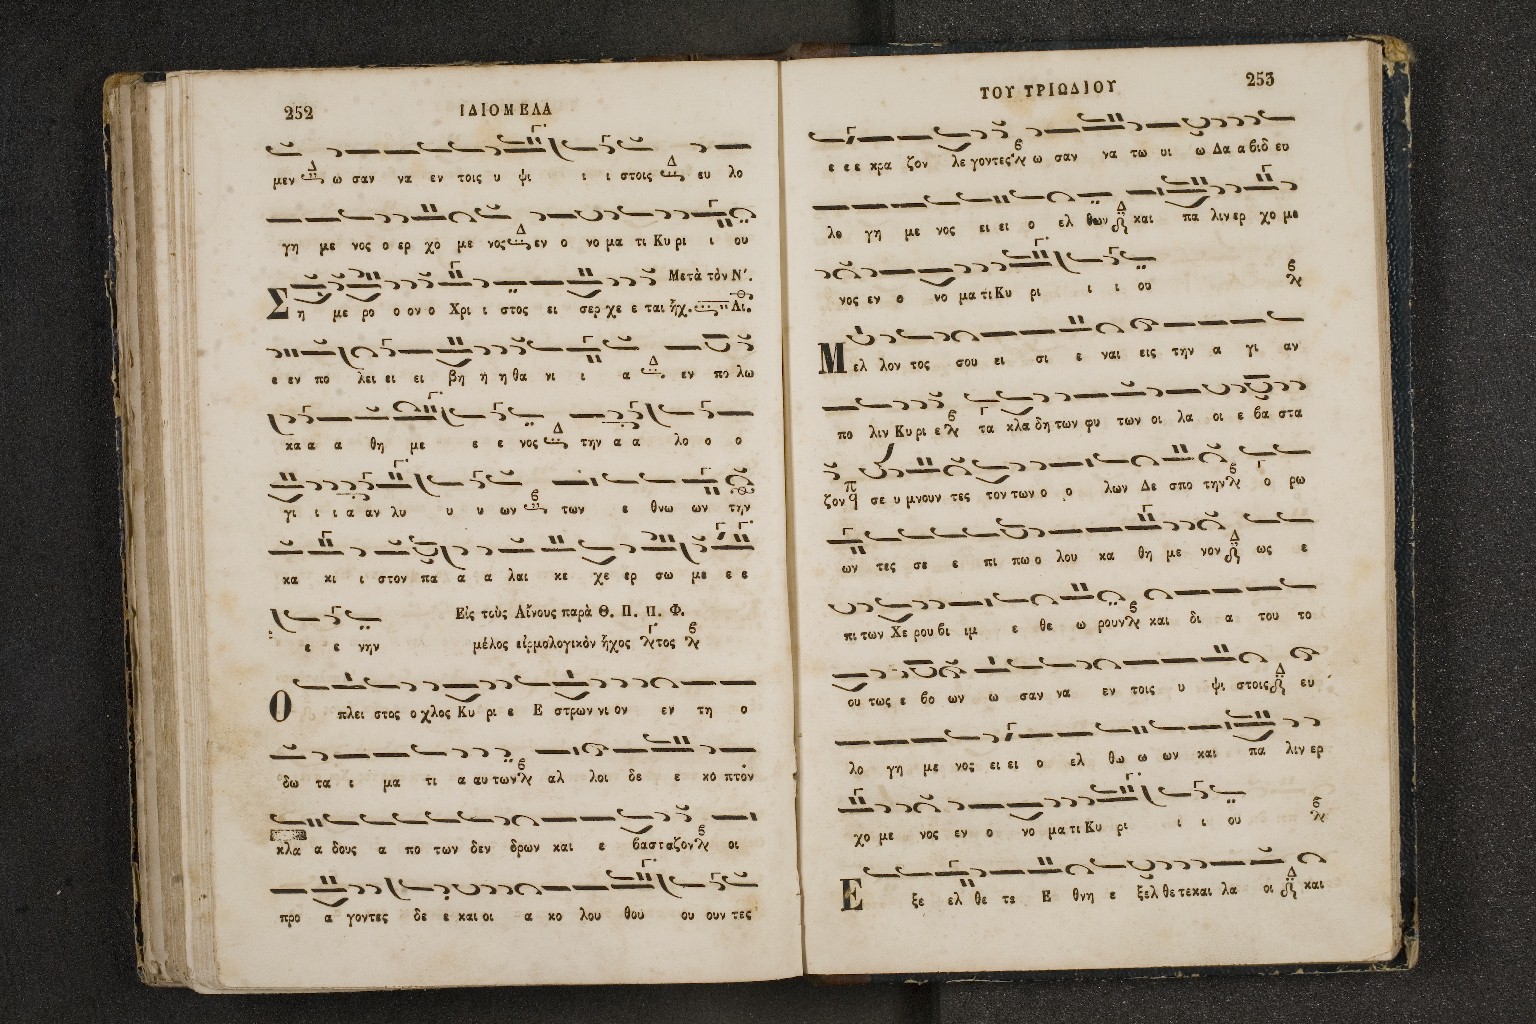 252
ΙΔΙΟΜΕΛΑ
μεν ω σαν να εν τοις υ ψι ι ι στοις ευ λο
γη με νος ο ερ χο με νος εν ο νο μα τι Κυ ρι ι ου
Μετὰ τὸν Ν΄.
Ση με ρο ο ον ο Χρι ι στος ει σερ χε ε ται ἦχ. Δι.
ε εν πο λει ει ει βη η η θα νι ι α εν πο λω
κα α α θη με ε ε νος την α α λο ο ο
γι ι ι α αν λυ υ υ ων των ε θνω ων την
κα κι ι στον πα α α λαι κε χε ερ σω με ε ε
Εἰς τοὺς Αἴνους παρὰ Θ. Π. Π. Φ.
ε ε νην μέλος εἱρμολογικὸν ἦχος τος
Ο πλει στος ο χλος Κυ ρι ε Ε στρων νι ον εν τη ο
δω τα ι μα τι α αυ των αλ λοι δε ε κο πτον
κλα α δους α πο των δεν δρων και ε βασταζον οι
προ α γοντες δε ε και οι α κο λου θου ου ουν τες
ΤΟΥ ΤΡΙΩΔΙΟΥ
253
ε ε ε κρα ζον λε γοντες ω σαν να τω υι ω Δα α βιδ ευ
λο γη με νος ει ει ο ελ θων και πα λιν ερ χο με
νος εν ο νο μα τι Κυ ρι ι ι ου
Μελ λον τος σου ει σι ε ναι εις την α γι αν
πο λιν Κυ ρι ε τα κλα δη των φυ των οι λα οι ε βα στα
ζον σε υ μνουν τες τον των ο ο λων Δε σπο την ο ρω
ων τες σε ε πι πω ο λου κα θη με νον ως ε
πι των Χε ρου βι ιμ ε θε ω ρουν και δι α του το
ου τως ε βο ων ω σαν να εν τοις υ ψι στοις ευ
λο γη με νος ει ει ο ελ θω ω ων και πα λιν ερ
χο με νος εν ο νο μα τι Κυ ρι ι ι ου
Ε ξε ελ θε τε Ε θνη ε ξελ θε τε και λα οι και